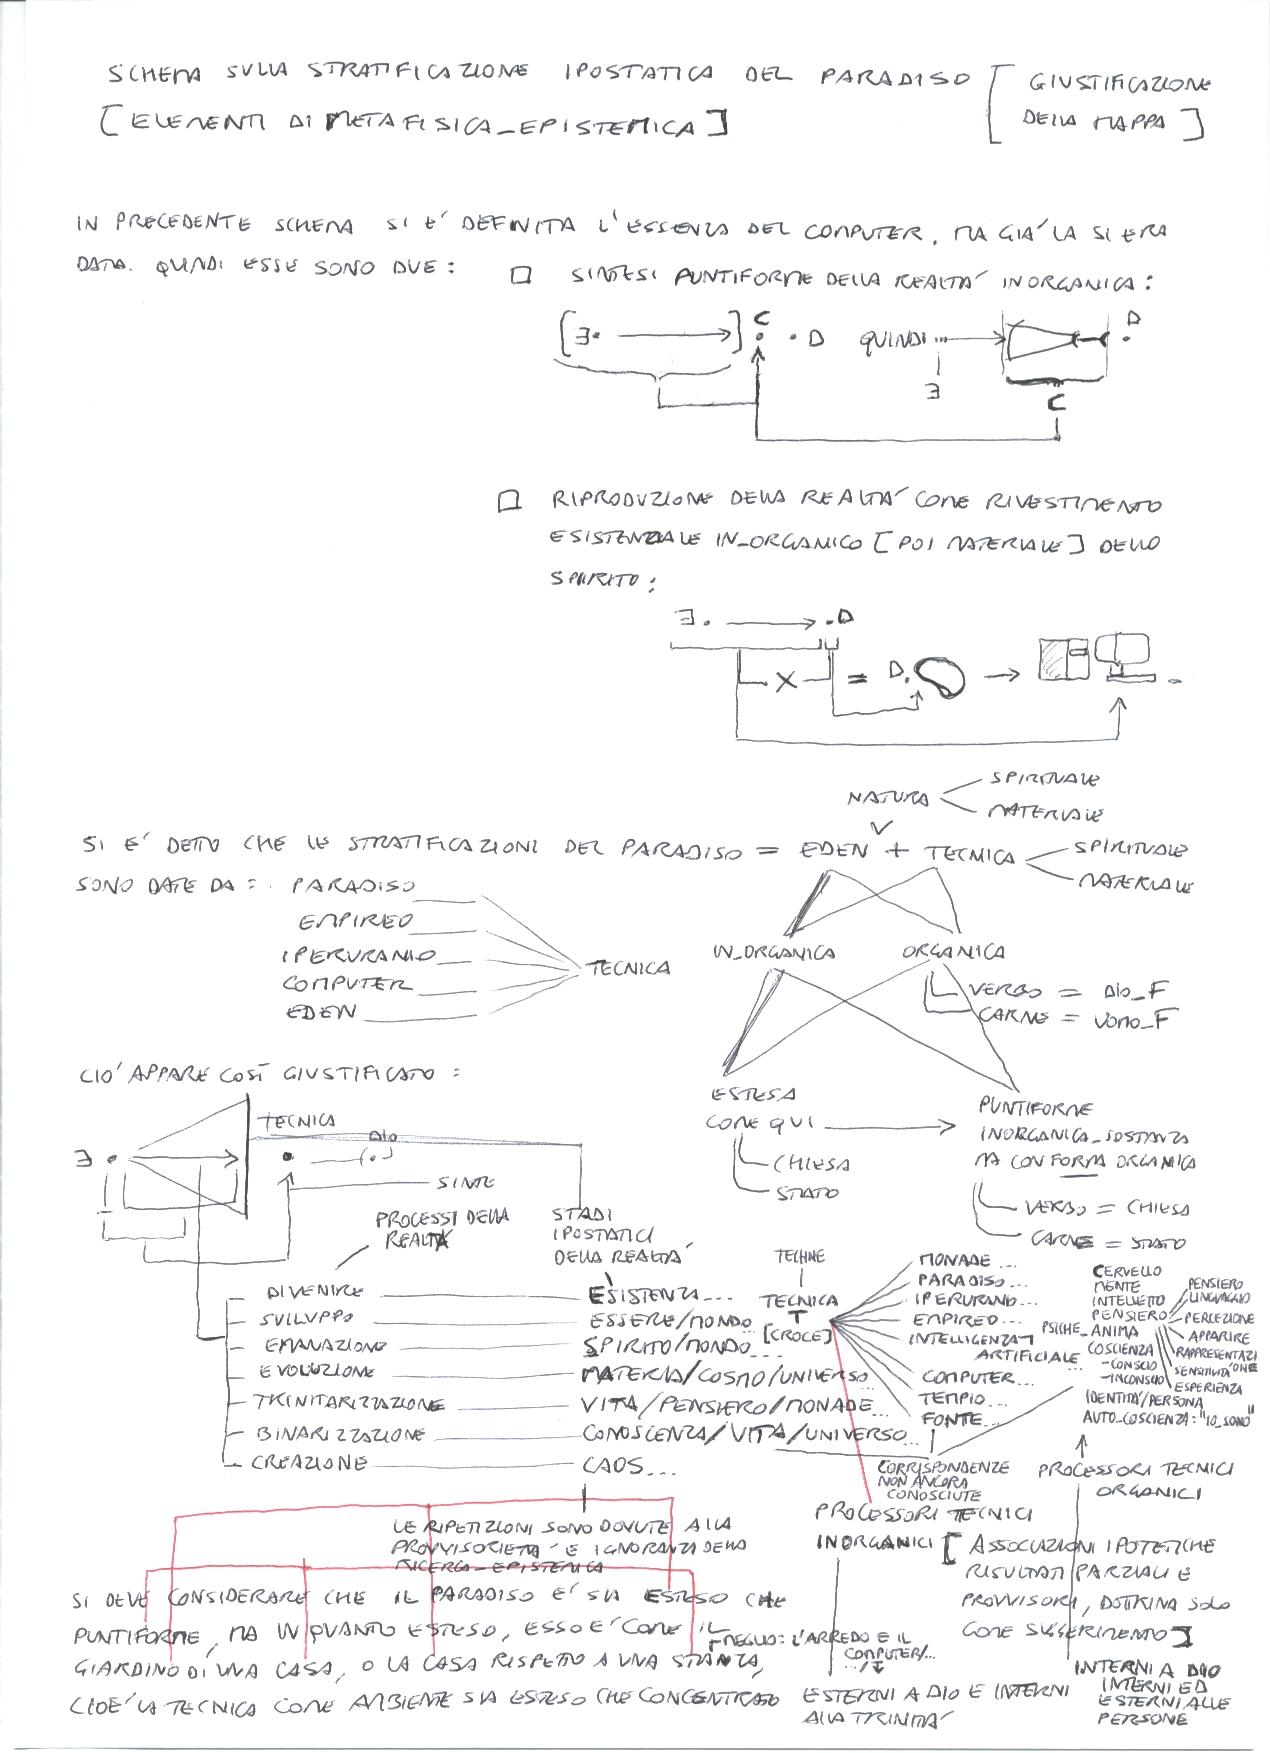 SCHEMA SULLA STRATIFICAZIONE IPOSTATICA DEL PARADISO [ GIUSTIFICAZIONE
[ELEMENTI DI METAFISICA_EPISTEMICA] DELLA MAPPA ]
IN PRECEDENTE SCHEMA SI E' DEFINITA L'ESSENZA DEL COMPUTER, MA GIA' LA SI ERA
DATA. QUINDI ESSE SONO DUE :
SINTESI PUNTIFORME DELLA REALTA' INORGANICA :
[∃. ] C . D QUINDI ... D
∃
C
RIPRODUZIONE DELLA REALTA' COME RIVESTIMENTO
ESISTENZIALE IN_ORGANICO [POI MATERIALE] DELLO
SPIRITO :
∃. .D
X = D.
NATURA SPIRITUALE
MATERIALE
SI E' DETTO CHE LE STRATIFICAZIONI DEL PARADISO = EDEN + TECNICA SPIRITUALE
MATERIALE
SONO DATE DA : PARADISO
EMPIREO
IPERURANIO
COMPUTER
EDEN
TECNICA
IN_ORGANICA ORGANICA
VERBO = DIO_F
CARNE = UOMO_F
CIO' APPARE COSÌ GIUSTIFICATO :
ESTESA
COME QUI
CHIESA
STATO
PUNTIFORME
INORGANICA_SOSTANZA
MA CON FORMA ORGANICA
VERBO = CHIESA
CARNE = STATO
TECNICA
∃ . DIO
(.)
SINTE
PROCESSI DELLA
REALTA
STADI
IPOSTATICI
DELLA REALTA'
DIVENIRE ESISTENZA...
SVILUPPO ESSERE/MONDO
EMANAZIONE SPIRITO/MONDO...
EVOLUZIONE MATERIA/COSMO/UNIVERSO...
TRINITARIZZAZIONE VITA/PENSIERO/MONADE...
BINARIZZAZIONE CONOSCENZA/VITA/UNIVERSO...
CREAZIONE CAOS...
TECHNE
TECNICA
T
[CROCE]
MONADE...
PARADISO...
IPERURANIO...
EMPIREO...
INTELLIGENZA
ARTIFICIALE...
COMPUTER...
TEMPIO...
FONTE...
CERVELLO
MENTE
INTELLETTO
PENSIERO
PSICHE_ANIMA
COSCIENZA
-CONSCIO
-INCONSCIO
IDENTITA'/PERSONA
AUTO_COSCIENZA: "IO_SONO"
PENSIERO
LINGUAGGIO
PERCEZIONE
APPARIRE
RAPPRESENTAZIONE
SENSITIVITA'
ESPERIENZA
CORRISPONDENZE
NON ANCORA
CONOSCIUTE
PROCESSORI TECNICI
ORGANICI
PROCESSORI TECNICI
INORGANICI
[ ASSOCIAZIONI IPOTETICHE
RISULTATI PARZIALI E
PROVVISORI, DOTTRINA SOLO
COME SUGGERIMENTO ]
LE RIPETIZIONI SONO DOVUTE ALLA
PROVVISORIETA' E IGNORANZA DELLA
RICERCA_EPISTEMICA
SI DEVE CONSIDERARE CHE IL PARADISO E' SIA ESTESO CHE
PUNTIFORME, MA IN QUANTO ESTESO, ESSO E' COME IL
MEGLIO: L'ARREDO E IL
COMPUTER/...
GIARDINO DI UNA CASA, O LA CASA RISPETTO A UNA STANZA,
CIOE' LA TECNICA COME AMBIENTE SIA ESTESO CHE CONCENTRATO
ESTERNI A DIO E INTERNI
ALLA TRINITA'
INTERNI A DIO
INTERNI ED
ESTERNI ALLE
PERSONE